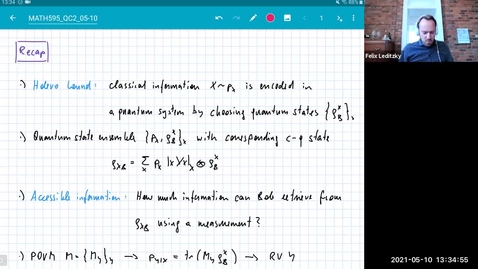 13:34
88%
MATH595_QC2_05-10
1
Felix Leditzky
Recap
·) Holevo bound: classical information X~pₓ is encoded in
a quantum system by choosing quantum states {ρ_B^x}ₓ
·) Quantum state ensemble {pₓ, ρ_B^x}ₓ with corresponding c-q state
ρ_XB = ∑ₓ pₓ |x⟩⟨x|ₓ ⊗ ρ_B^x
·) Accessible information: How much information can Bob retrieve from
ρ_XB using a measurement?
·) POVM M = {M_y}_y → p_y|x = tr(M_y ρ_B^x) → RV Y
2021-05-10 13:34:55